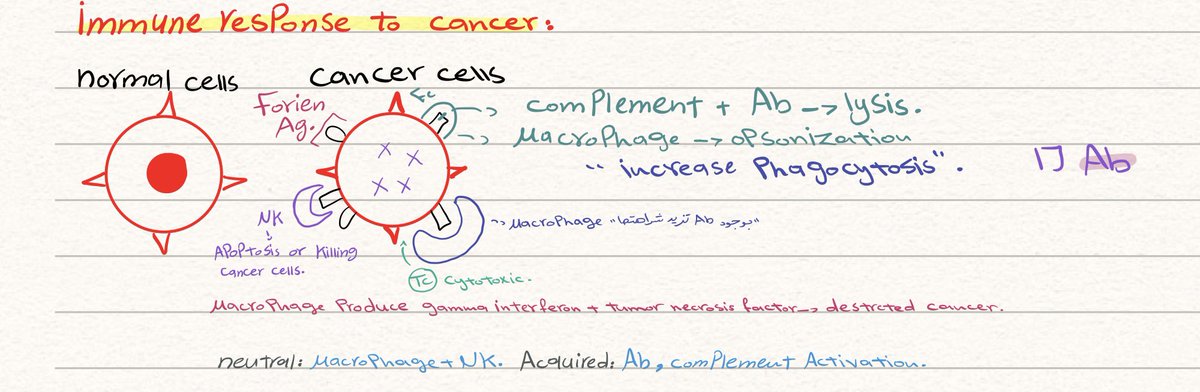 immune response to cancer:
normal cells
cancer cells
Forien
Ag.
Fc
complement + Ab → lysis.
Macrophage → opsonization
"increase phagocytosis".
1] Ab
NK
Apoptosis or killing
cancer cells.
→ Macrophage "بوجود Ab تزيد شراهتها"
Tc cytotoxic.
Macrophage produce gamma interferon + tumor necrosis factor → destrcted cancer.
neutral: Macrophage + NK. Acquired: Ab, complement Activation.